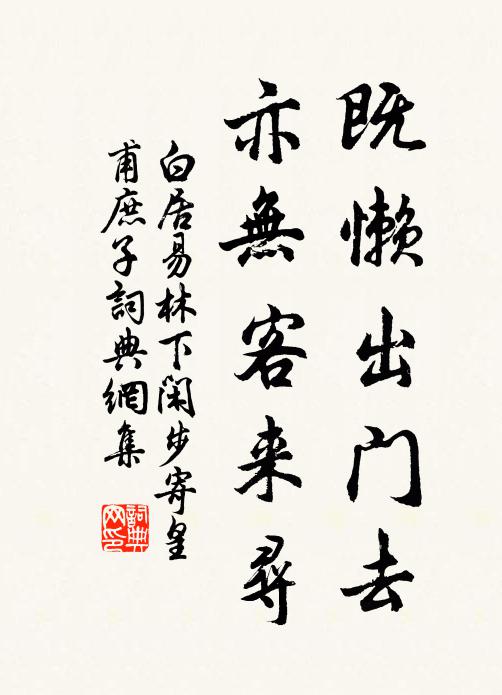 既懒出门去
亦無客来尋
白居易林下闲步寄皇
甫庶子詞典網集
詞典
网印